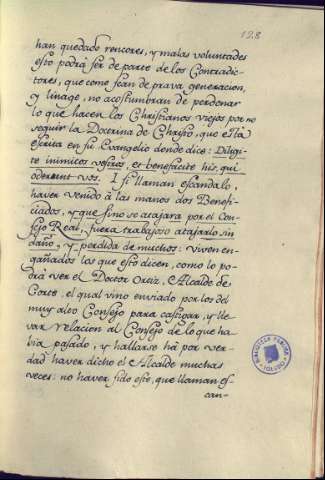 128
han quedado rencores, y malas voluntades
esto podrá ser de parte de los Contradic-
tores, que como sean de prava generacion,
y linage, no acostumbran de perdonar
lo que hacen los Christianos viejos por no
seguir la Doctrina de Christo, que está
escrita en su Evangelio donde dice: Diligi-
te inimicos vestros, et benefacite his, qui
oderunt vos. I si llaman escandalo,
haver venido á las manos dos Benefi-
ciados, y que sino se atajara por el Con-
sejo Real, fuera trabajoso atajarlo sin
daño, y perdida de muchos: viven en-
gañados los que esto dicen, como lo po-
drá ver el Doctor Ortiz, Alcalde de
Corte, el qual vino enviado por los del
muy alto Consejo para castigar, y lle-
var relacion al Consejo de lo que ha-
bia pasado, y hallarse há por ver-
dad haver dicho el Alcalde muchas
veces: no haver sido este, que llaman es-
can-
BIBLIOTECA PUBLICA
TOLEDO